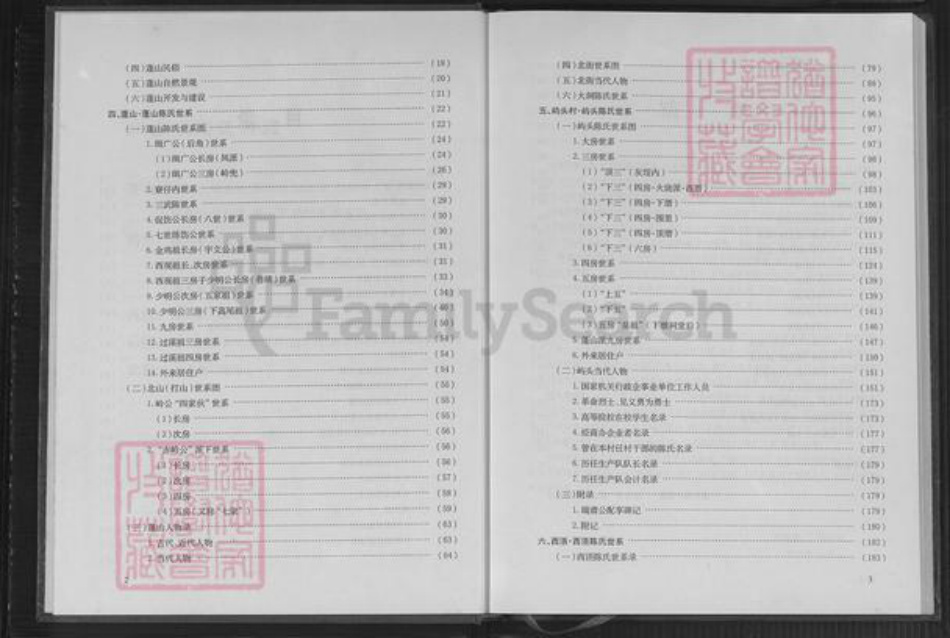 (四)蓬山风俗 (18)
(五)蓬山自然景观 (20)
(六)蓬山开发与建设 (21)
四、蓬山·蓬山陈氏世系 (22)
(一)蓬山陈氏世系图 (22)
(后角)世系 (24)
(24)
(26)
世系 (29)
3.三武陈世系 (29)
公长房(八世)世系 (30)
5.七世 公世系 (30)
(31)
7.西观祖长、次房世系 (31)
8.西观祖三房子少明公长房 世系 (33)
9.少明公次房 世系 (34)
10.少明公三房(下高尾祖)世系 (40)
11.九房世系 (50)
12.过溪祖三房世系 (54)
13.过溪祖四房世系 (54)
14.外来居住户 (54)
(二)北山(打山)世系图 (55)
1.岭公“四家伙”世系 (55)
(1)长房 (55)
(2)次房 (56)
派下世系 (56)
(1)长房 (56)
(2)次房 (57)
(3)四房 (58)
(4)五房(又称“七家”) (59)
(三)蓬山人物录 (63)
1.古代、近代人物 (63)
2.当代人物 (64)
2
(四)北街世系图 (79)
(五)北街当代人物 (88)
(六)大圳陈氏世系 (95)
五、屿头村·屿头陈氏世系 (96)
(一)屿头陈氏世系图 (97)
1.大房世系 (97)
2.三房世系 (98)
(1)“顶三”(灰埕内) (98)
(2)“下三”(四房· (103)
(3)“下三”(四房·下 (106)
(4)“下三”(四房·围里) (109)
(5)“下三”(四房·顶 (111)
(6)“下三”(六房) (115)
3.四房世系 (124)
4.五房世系 (139)
(1)“上五” (139)
(2)“下五” (141)
(3)五房 (146)
5.蓬山派九房世系 (147)
6.外来居住户 (150)
(二)屿头当代人物 (151)
1.国家机关行政企事业单位工作人员 (151)
2.革命烈士、见义勇为勇士 (173)
3.高等院校在校学生名录 (173)
4.经商办企业者名录 (177)
5.曾在本村任村干部的陈氏名录 (177)
6.历任生产队队长名录 (179)
7.历任生产队会计名录 (179)
(三)附录 (179)
(179)
2.附记 (180)
六、西顶·西顶陈氏世系 (182)
(一)西顶陈氏世系录 (183)
3
FamilySearch